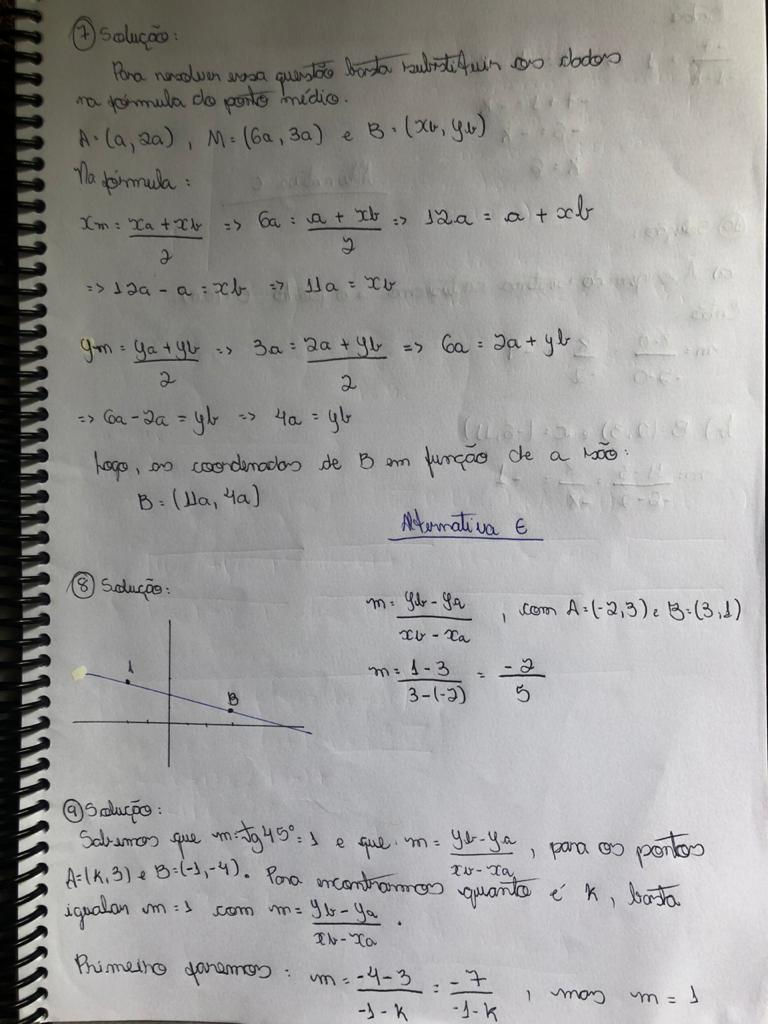 7 Solução:
Para resolver essa questão basta substituir os dados
na fórmula do ponto médio.
A=(a, 2a), M=(6a, 3a) e B=(xb, yb)
Na fórmula:
xm = xa + xb / 2 => 6a = a + xb / 2 => 12a = a + xb
=> 12a - a = xb => 11a = xb
ym = ya + yb / 2 => 3a = 2a + yb / 2 => 6a = 2a + yb
=> 6a - 2a = yb => 4a = yb
Logo, as coordenadas de B em função de a são:
B = (11a, 4a)
Alternativa E
8 Solução:
m = yb - ya / xb - xa, com A=(-2,3) e B=(3,1)
m = 1 - 3 / 3 - (-2) = -2 / 5
B
9 Solução:
Sabemos que m = tg45° = 1 e que m = yb - ya / xb - xa, para os pontos
A=(k,3) e B=(-1,-4). Para encontrarmos quanto é k, basta
igualar m = 1 com m = yb - ya / xb - xa.
Primeiro faremos: m = -4 - 3 / -1 - k = -7 / -1 - k, mas m = 1